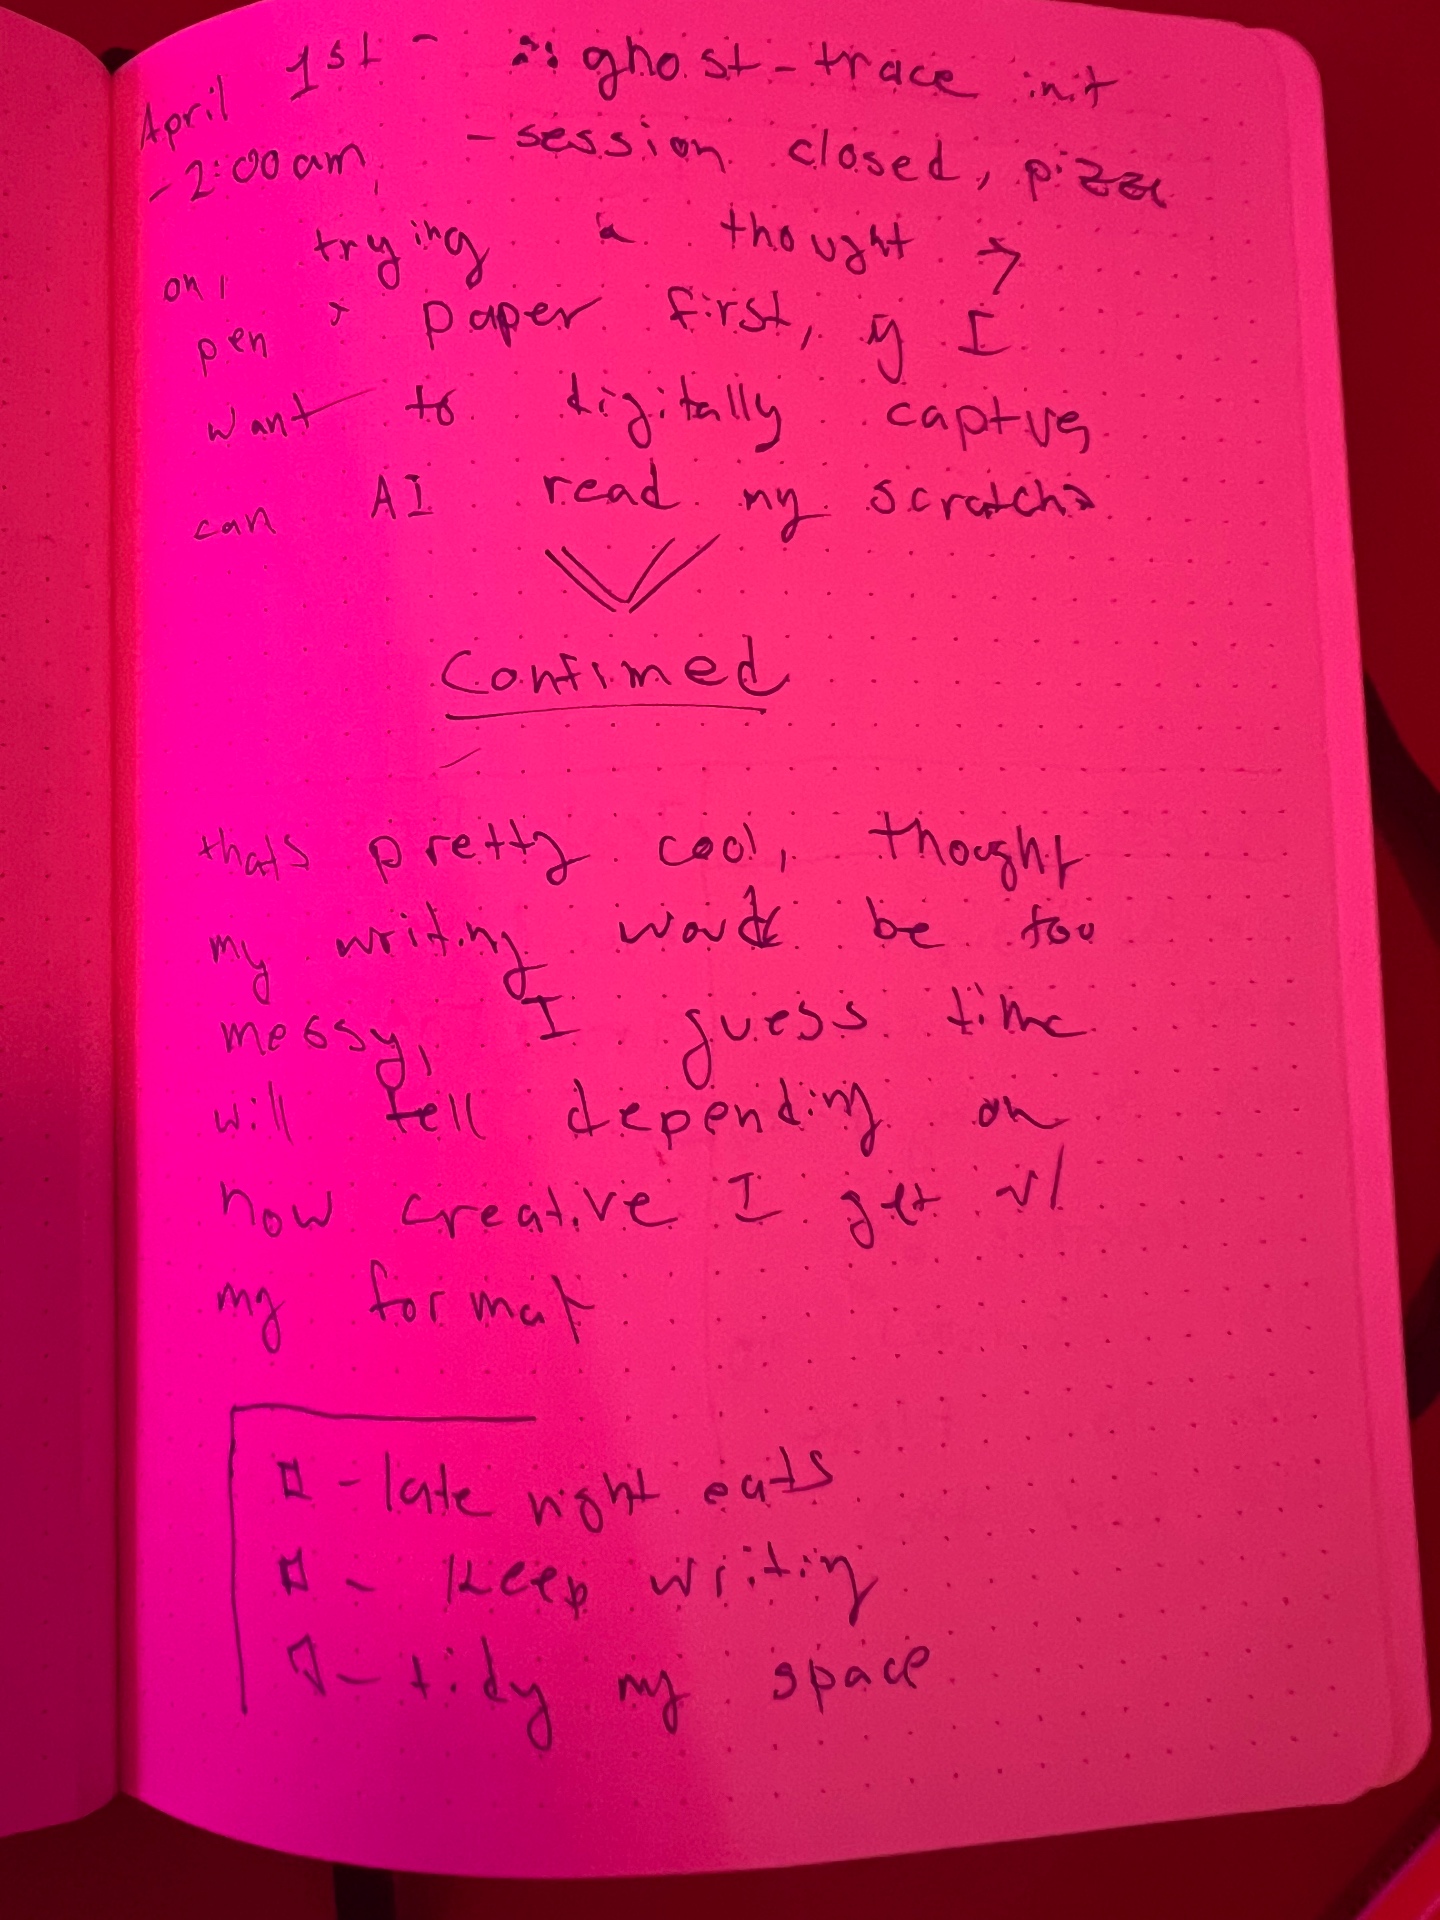 April 1st - ∴ ghost-trace init
- 2:00am, - session closed, pizza
on, trying a thought →
pen > paper first, if I
want to digitally capture,
can AI read my scratch?
Confirmed
thats pretty cool, thought
my writing would be too
messy, I guess time
will tell depending on
how creative I get w/
my format
□ - late night eats
□ - keep writing
□ - tidy my space